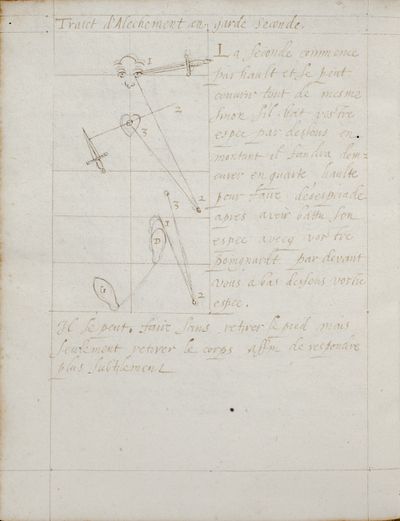 Traict d'Alechement en garde seconde.
La seconde commence
par hault et se peut
couurir tout de mesme
sinon s'il bat vostre
espee par dessous en
montant il faudra dem=
eurer en quarte haulte
pour faire desesperade
apres avoir battu son
espee avecq vostre
poingnardt par devant
vous a bas dessous vostre
espee.
Il se peut faire sans retirer le pied mais
seulement retirer le corps affin de respondre
plus subtilement
1
2
3
2
3
1
D
G
2